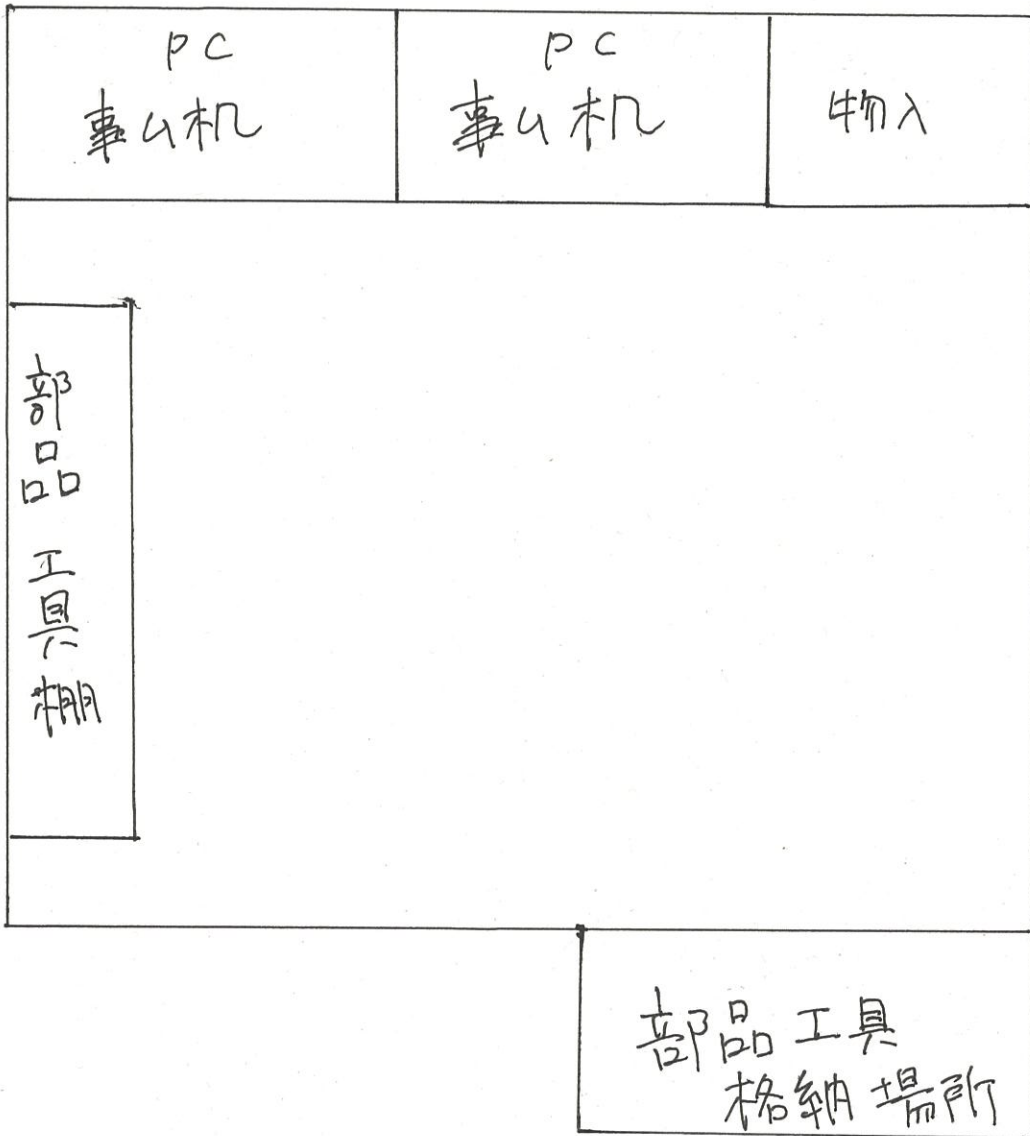 PC
事ム机
PC
事ム机
物入
部品 工具棚
部品工具
格納場所